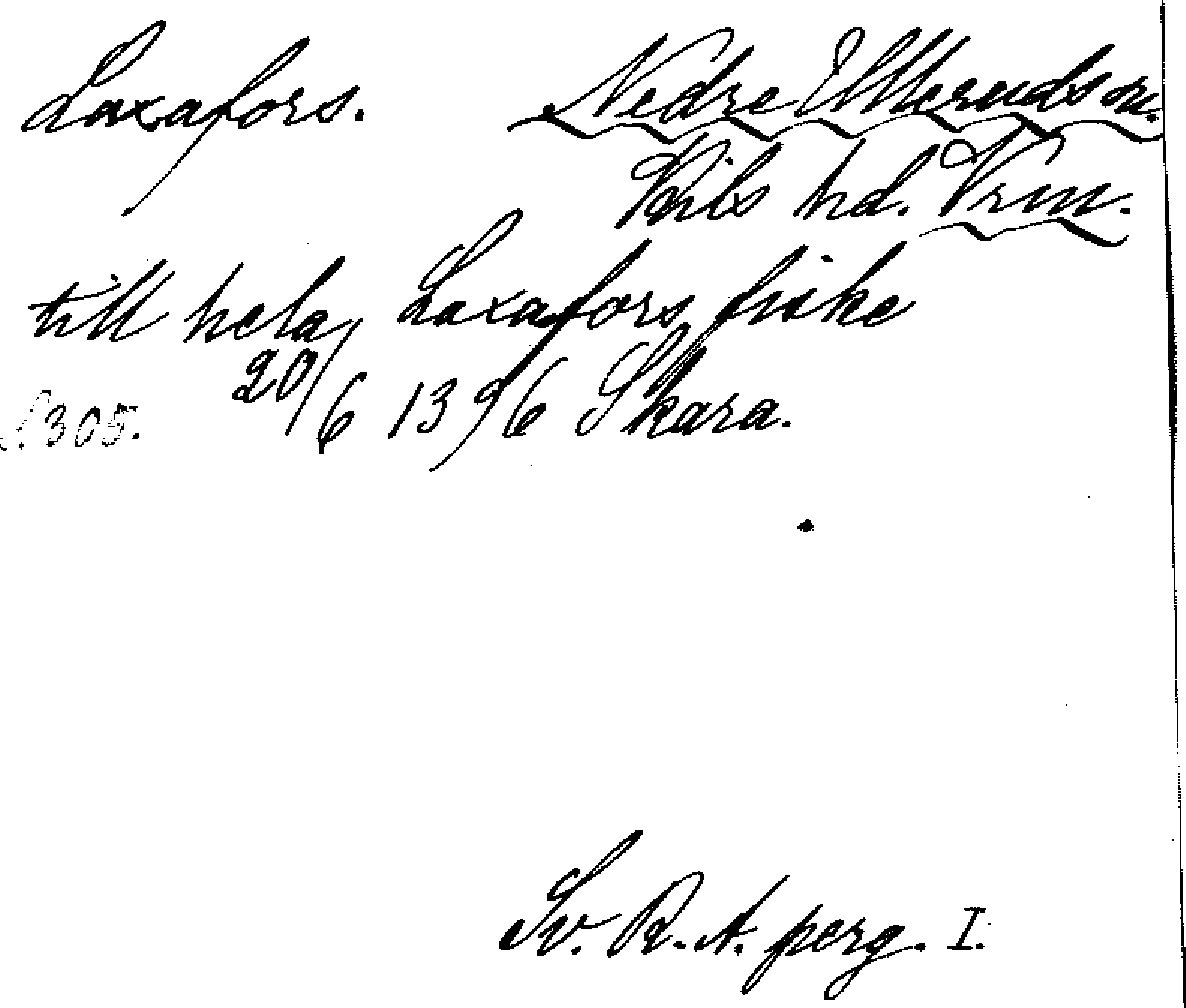 Laxafors. Nedre Ullerud sn.
Kils hd. Vrm.
till hela Laxafors fiske
20/6 1396 Skara.
305.
Sv. R. A. perg. I.